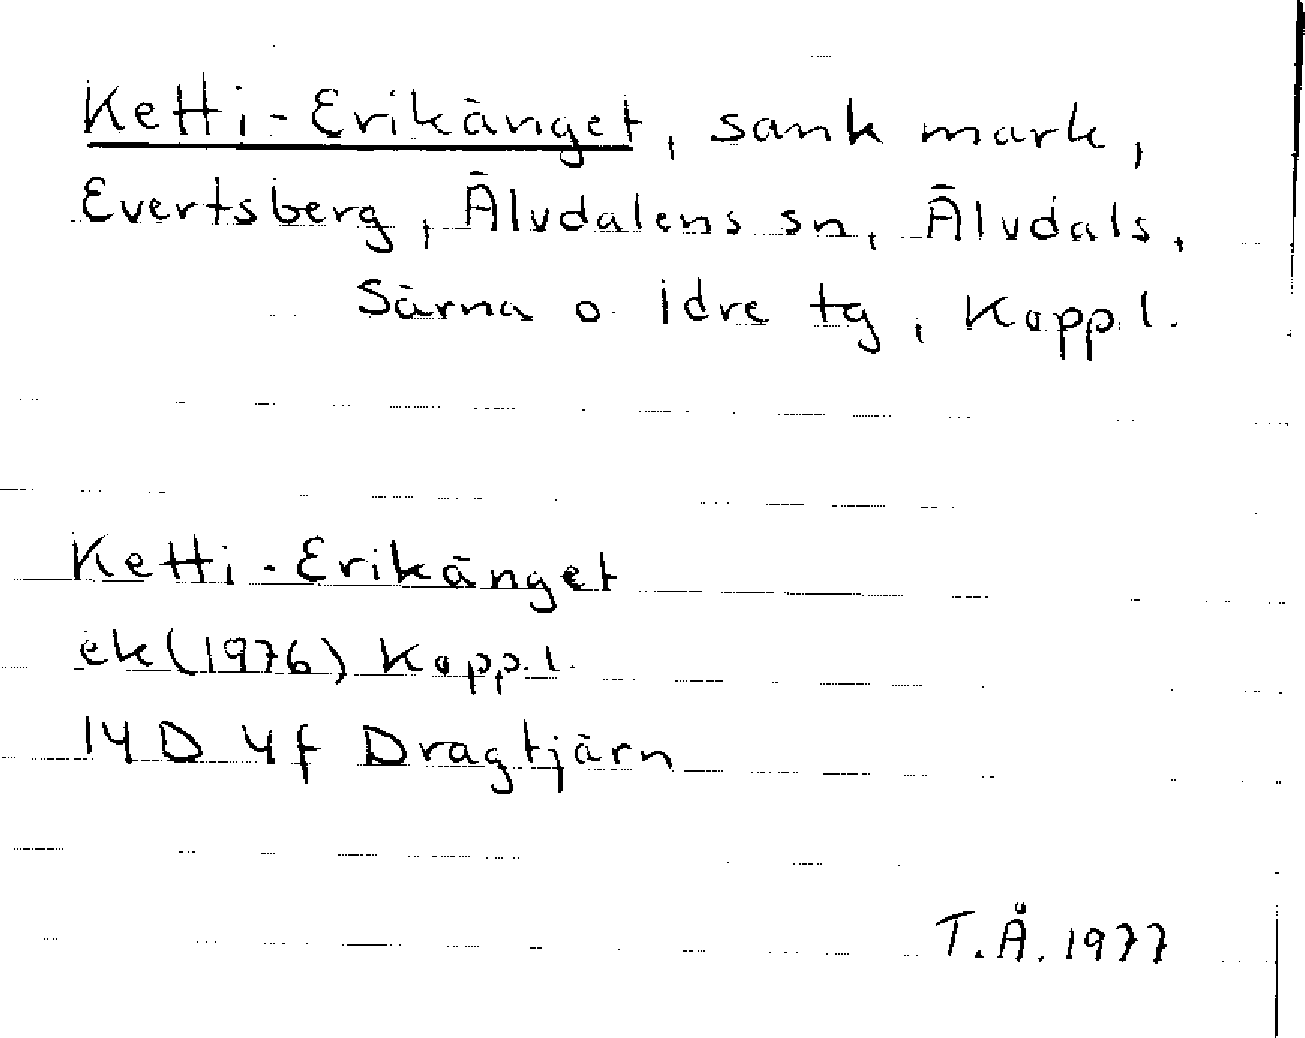 Ketti-Erikänget, sank mark,
Evertsberg, Älvdalens sn, Älvdals,
Särna o Idre tg, Kopp.l.
Ketti-Erikänget
ek(1976) Kopp.l.
14D 4f Dragtjärn
T.Å. 1977